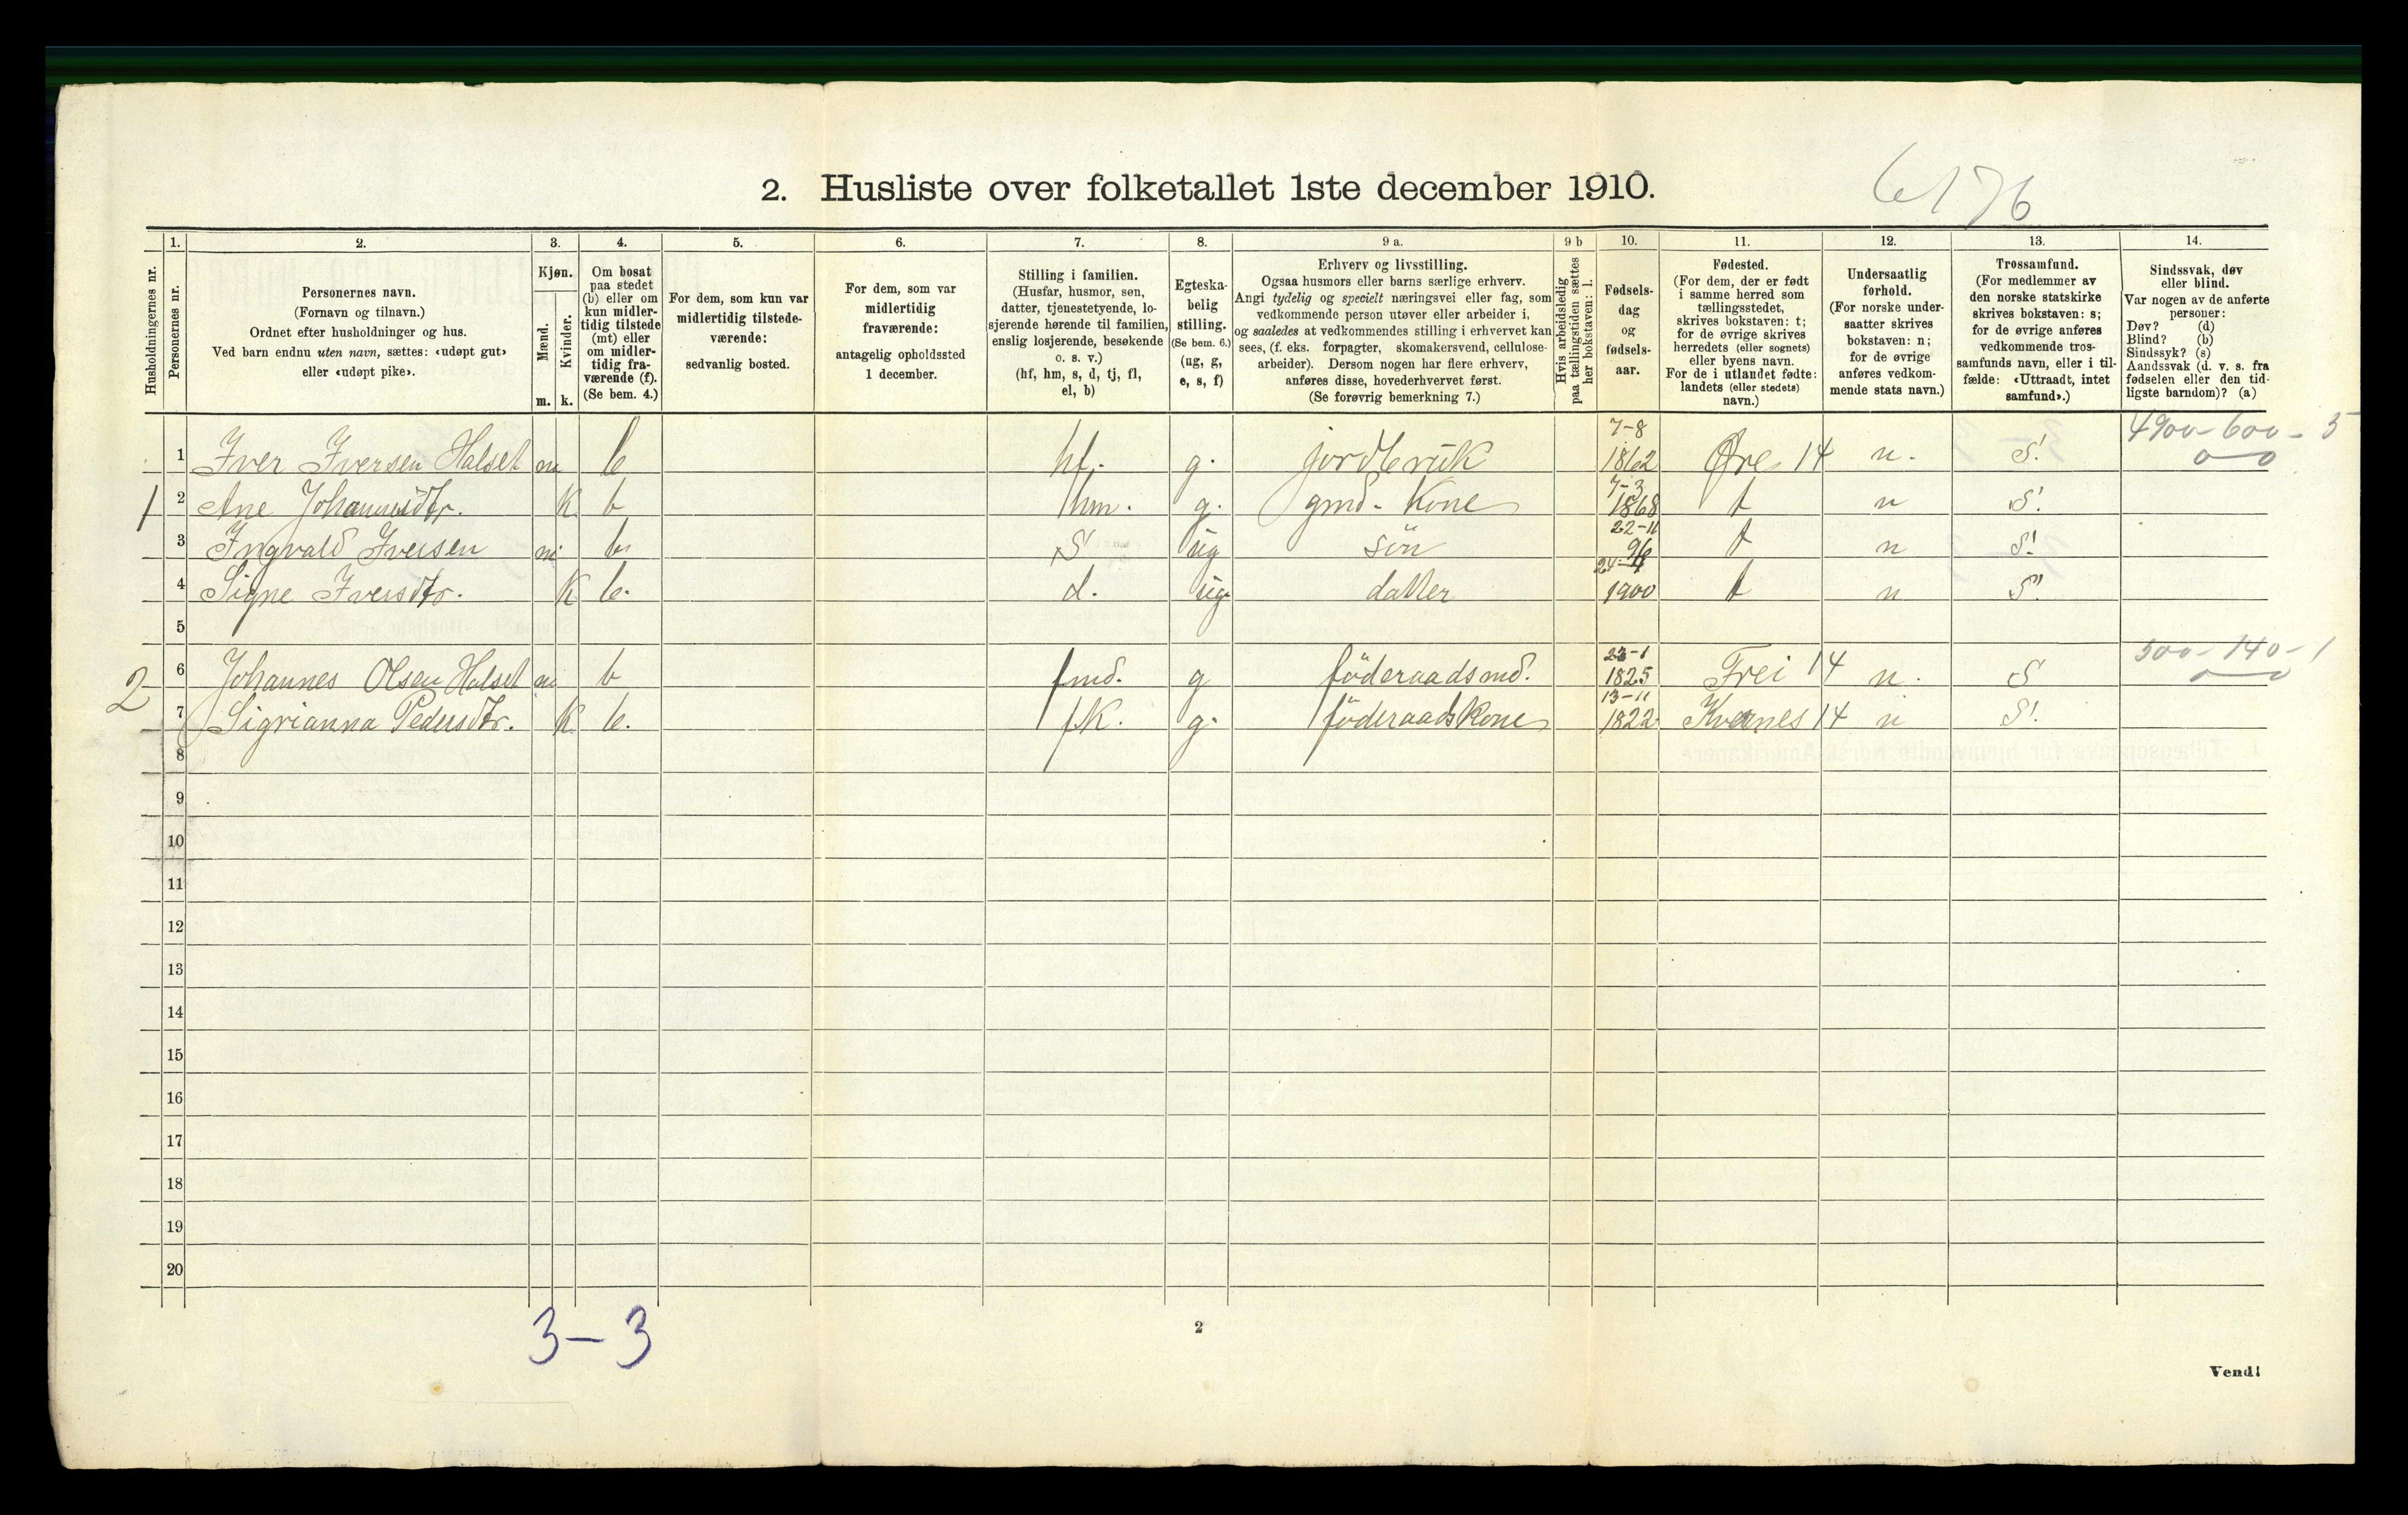 6176
2. Husliste over folketallet 1ste december 1910.
Husholdningernes nr.
1.
Personernes nr.
2.
Personernes navn.
(Fornavn og tilnavn.)
Ordnet efter husholdninger og hus.
Ved barn endnu uten navn, sættes: «udøpt gut»
eller «udøpt pike».
3.
Kjøn.
Mænd.
Kvinder.
m. k.
4.
Om bosat
paa stedet
(b) eller om
kun midler-
tidig tilstede
(mt) eller
om midler-
tidig fra-
værende (f).
(Se bem. 4.)
5.
For dem, som kun var
midlertidig tilstede-
værende:
sedvanlig bosted.
6.
For dem, som var
midlertidig
fraværende:
antagelig opholdssted
1 december.
7.
Stilling i familien.
(Husfar, husmor, søn,
datter, tjenestetyende, lo-
sjerende hørende til familien,
enslig losjerende, besøkende
o. s. v.)
(hf, hm, s, d, tj, fl,
el, b)
8.
Egteska-
belig
stilling.
(Se bem. 6.)
(ug, g,
e, s, f)
9 a.
Erhverv og livsstilling.
Ogsaa husmors eller barns særlige erhverv.
Angi tydelig og specielt næringsvei eller fag, som
vedkommende person utøver eller arbeider i,
og saaledes at vedkommendes stilling i erhvervet kan
sees, (f. eks. forpagter, skomakersvend, cellulose-
arbeider). Dersom nogen har flere erhverv,
anføres disse, hovederhvervet først.
(Se forøvrig bemerkning 7.)
9 b
Hvis arbeidsledig
paa tællingstiden sættes
her bokstaven: l.
10.
Fødsels-
dag
og
fødsels-
aar.
11.
Fødested.
(For dem, der er født
i samme herred som
tællingsstedet,
skrives bokstaven: t;
for de øvrige skrives
herredets (eller sognets)
eller byens navn.
For de i utlandet fødte:
landets (eller stedets)
navn.)
12.
Undersaatlig
forhold.
(For norske under-
saatter skrives
bokstaven: n;
for de øvrige
anføres vedkom-
mende stats navn.)
13.
Trossamfund.
(For medlemmer av
den norske statskirke
skrives bokstaven: s;
for de øvrige anføres
vedkommende tros-
samfunds navn, eller i til-
fælde: «Uttraadt, intet
samfund».)
14.
Sindssvak, døv
eller blind.
Var nogen av de anførte
personer:
Døv? (d)
Blind? (b)
Sindssyk? (s)
Aandssvak (d. v. s. fra
fødselen eller den tid-
ligste barndom)? (a)
1 Iver Iversen Halset m b hf. g. jordbruk 7-8 1862 Øre 14 n. S. 4900-600-5 0-0
1 2 Ane Johannesdtr. K b hm. g. gmd. Kone 7-3 1868 t n S.
3 Ingvald Iversen m b S ug sön 22-11 96 t n S.
4 Signe Iversdtr. K b. d. ug. datter 24-4 1900 t n S.
5
2 6 Johannes Olsen Halset m b fmd. g föderaadsmd. 23-1 1825 Frei 14 n. S 500-140-1 0-0
7 Sigrianna Pedersdtr. K b. fK. g. föderaadskone 13-11 1822 Kvernes 14 n S.
8
9
10
11
12
13
14
15
16
17
18
19
20
3-3
2
Vend!